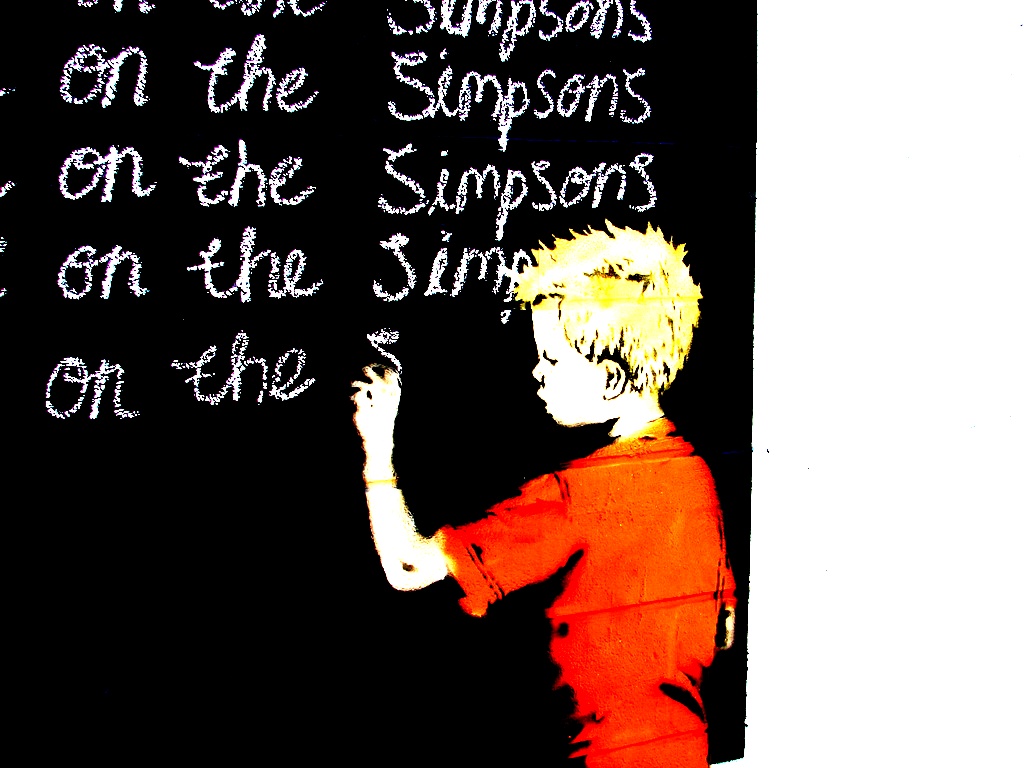 on the Simpsons
on the Simpsons
on the Simpsons
on the Simp
on the S